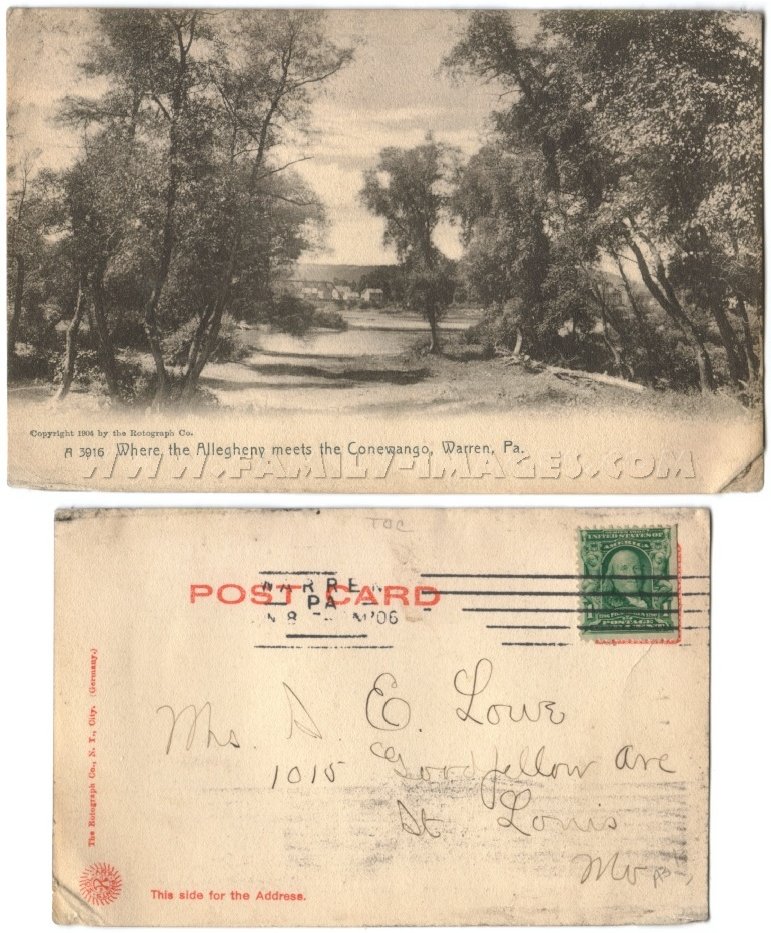 Copyright 1904 by the Rotograph Co.
A 3916 Where the Allegheny meets the Conewango, Warren, Pa.
WWW.FAMILY-IMAGES.COM
TOC
POST CARD
WARREN
PA
'06
UNITED STATES OF
AMERICA
POSTAGE
Mrs. S. E. Lowe
1015 Goodfellow Ave
St Louis
Mo
The Rotograph Co., N. Y., City. (Germany.)
This side for the Address.